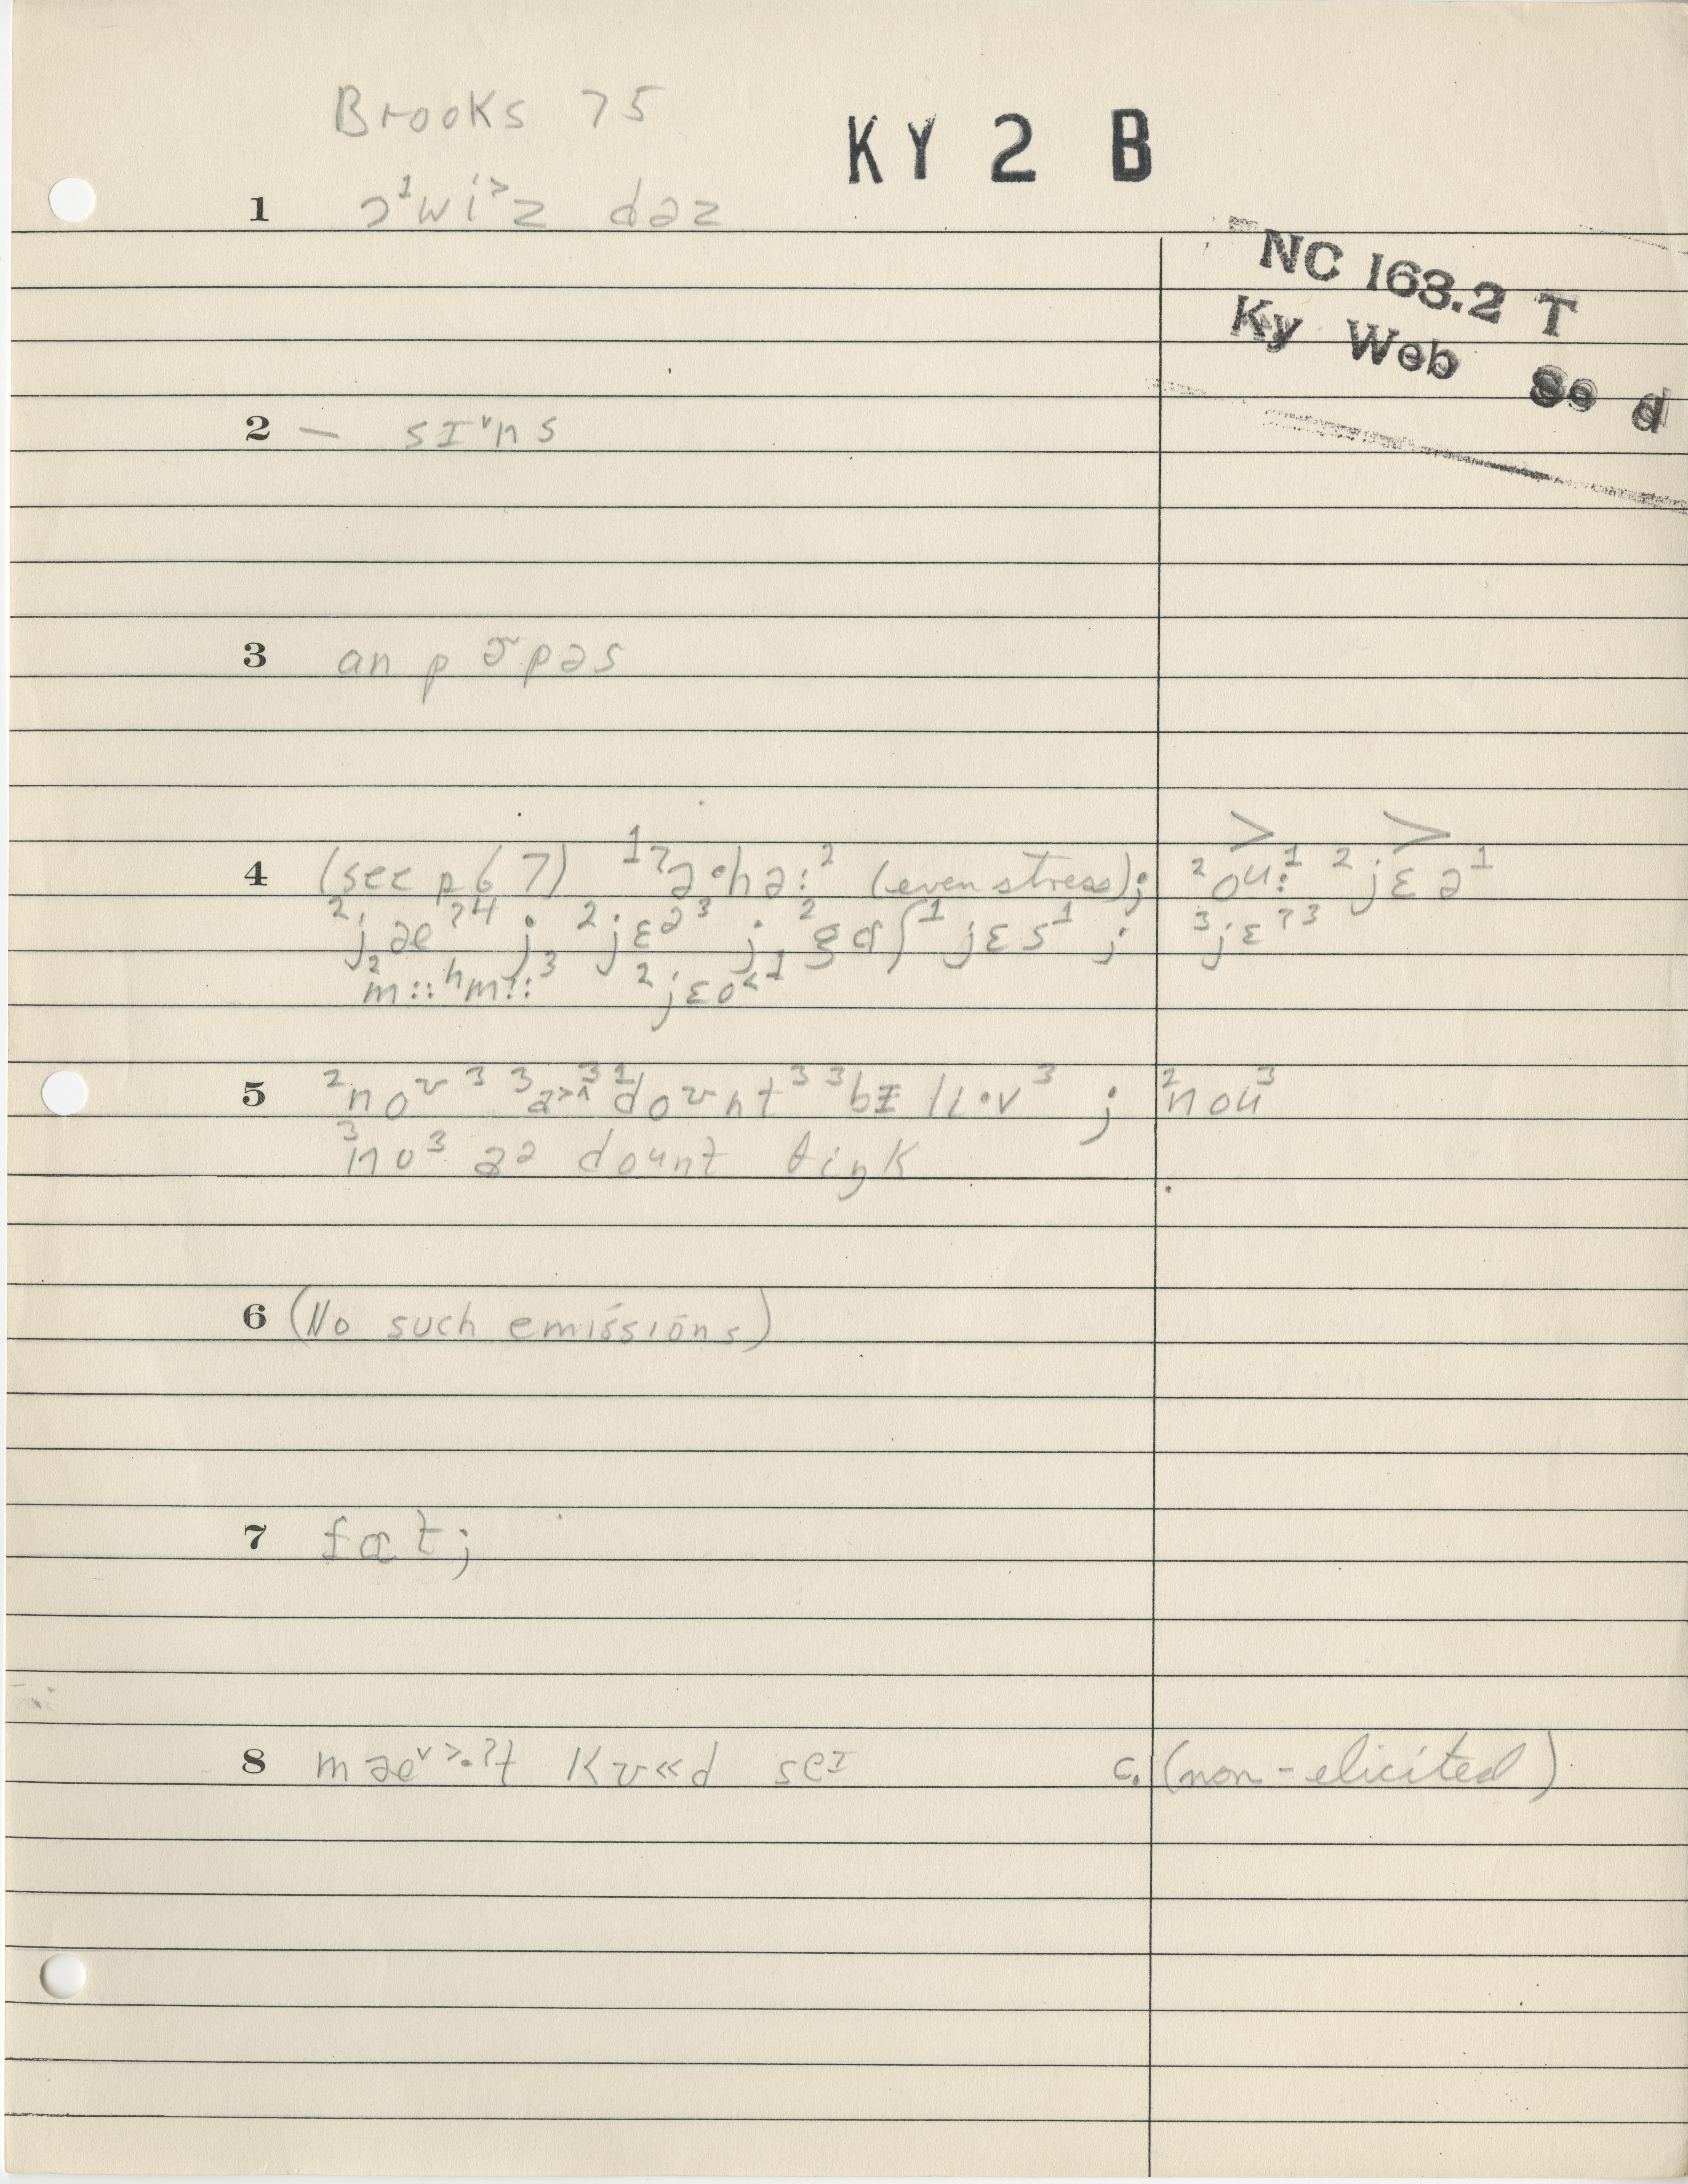 Brooks 75
KY 2 B
1 ɔ¹wi˃z dəz
NC 163.2 T
Ky Web
2 — sɪ˅ns
3 an pɚpəs
4 (see p 67) ¹ʔə·hə:² (even stress); ²ou:¹ ²jɛə¹
²jæʔ⁴ ; ²jɛə³ ; ²gɑʃ¹ jɛs¹ ; ³jɛʔ³
²m::hm::³ ²jɛo˂¹
5 ²noʊ³ ³a˃^³ ¹doʊnt³ ³bɪliv³ ; ²nou³
³no³ aə dount θiŋk
6 (No such emissions)
7 fɑt;
8 mæ˅˃·ʔt kʊ«d seɪ c. (non-elicited)